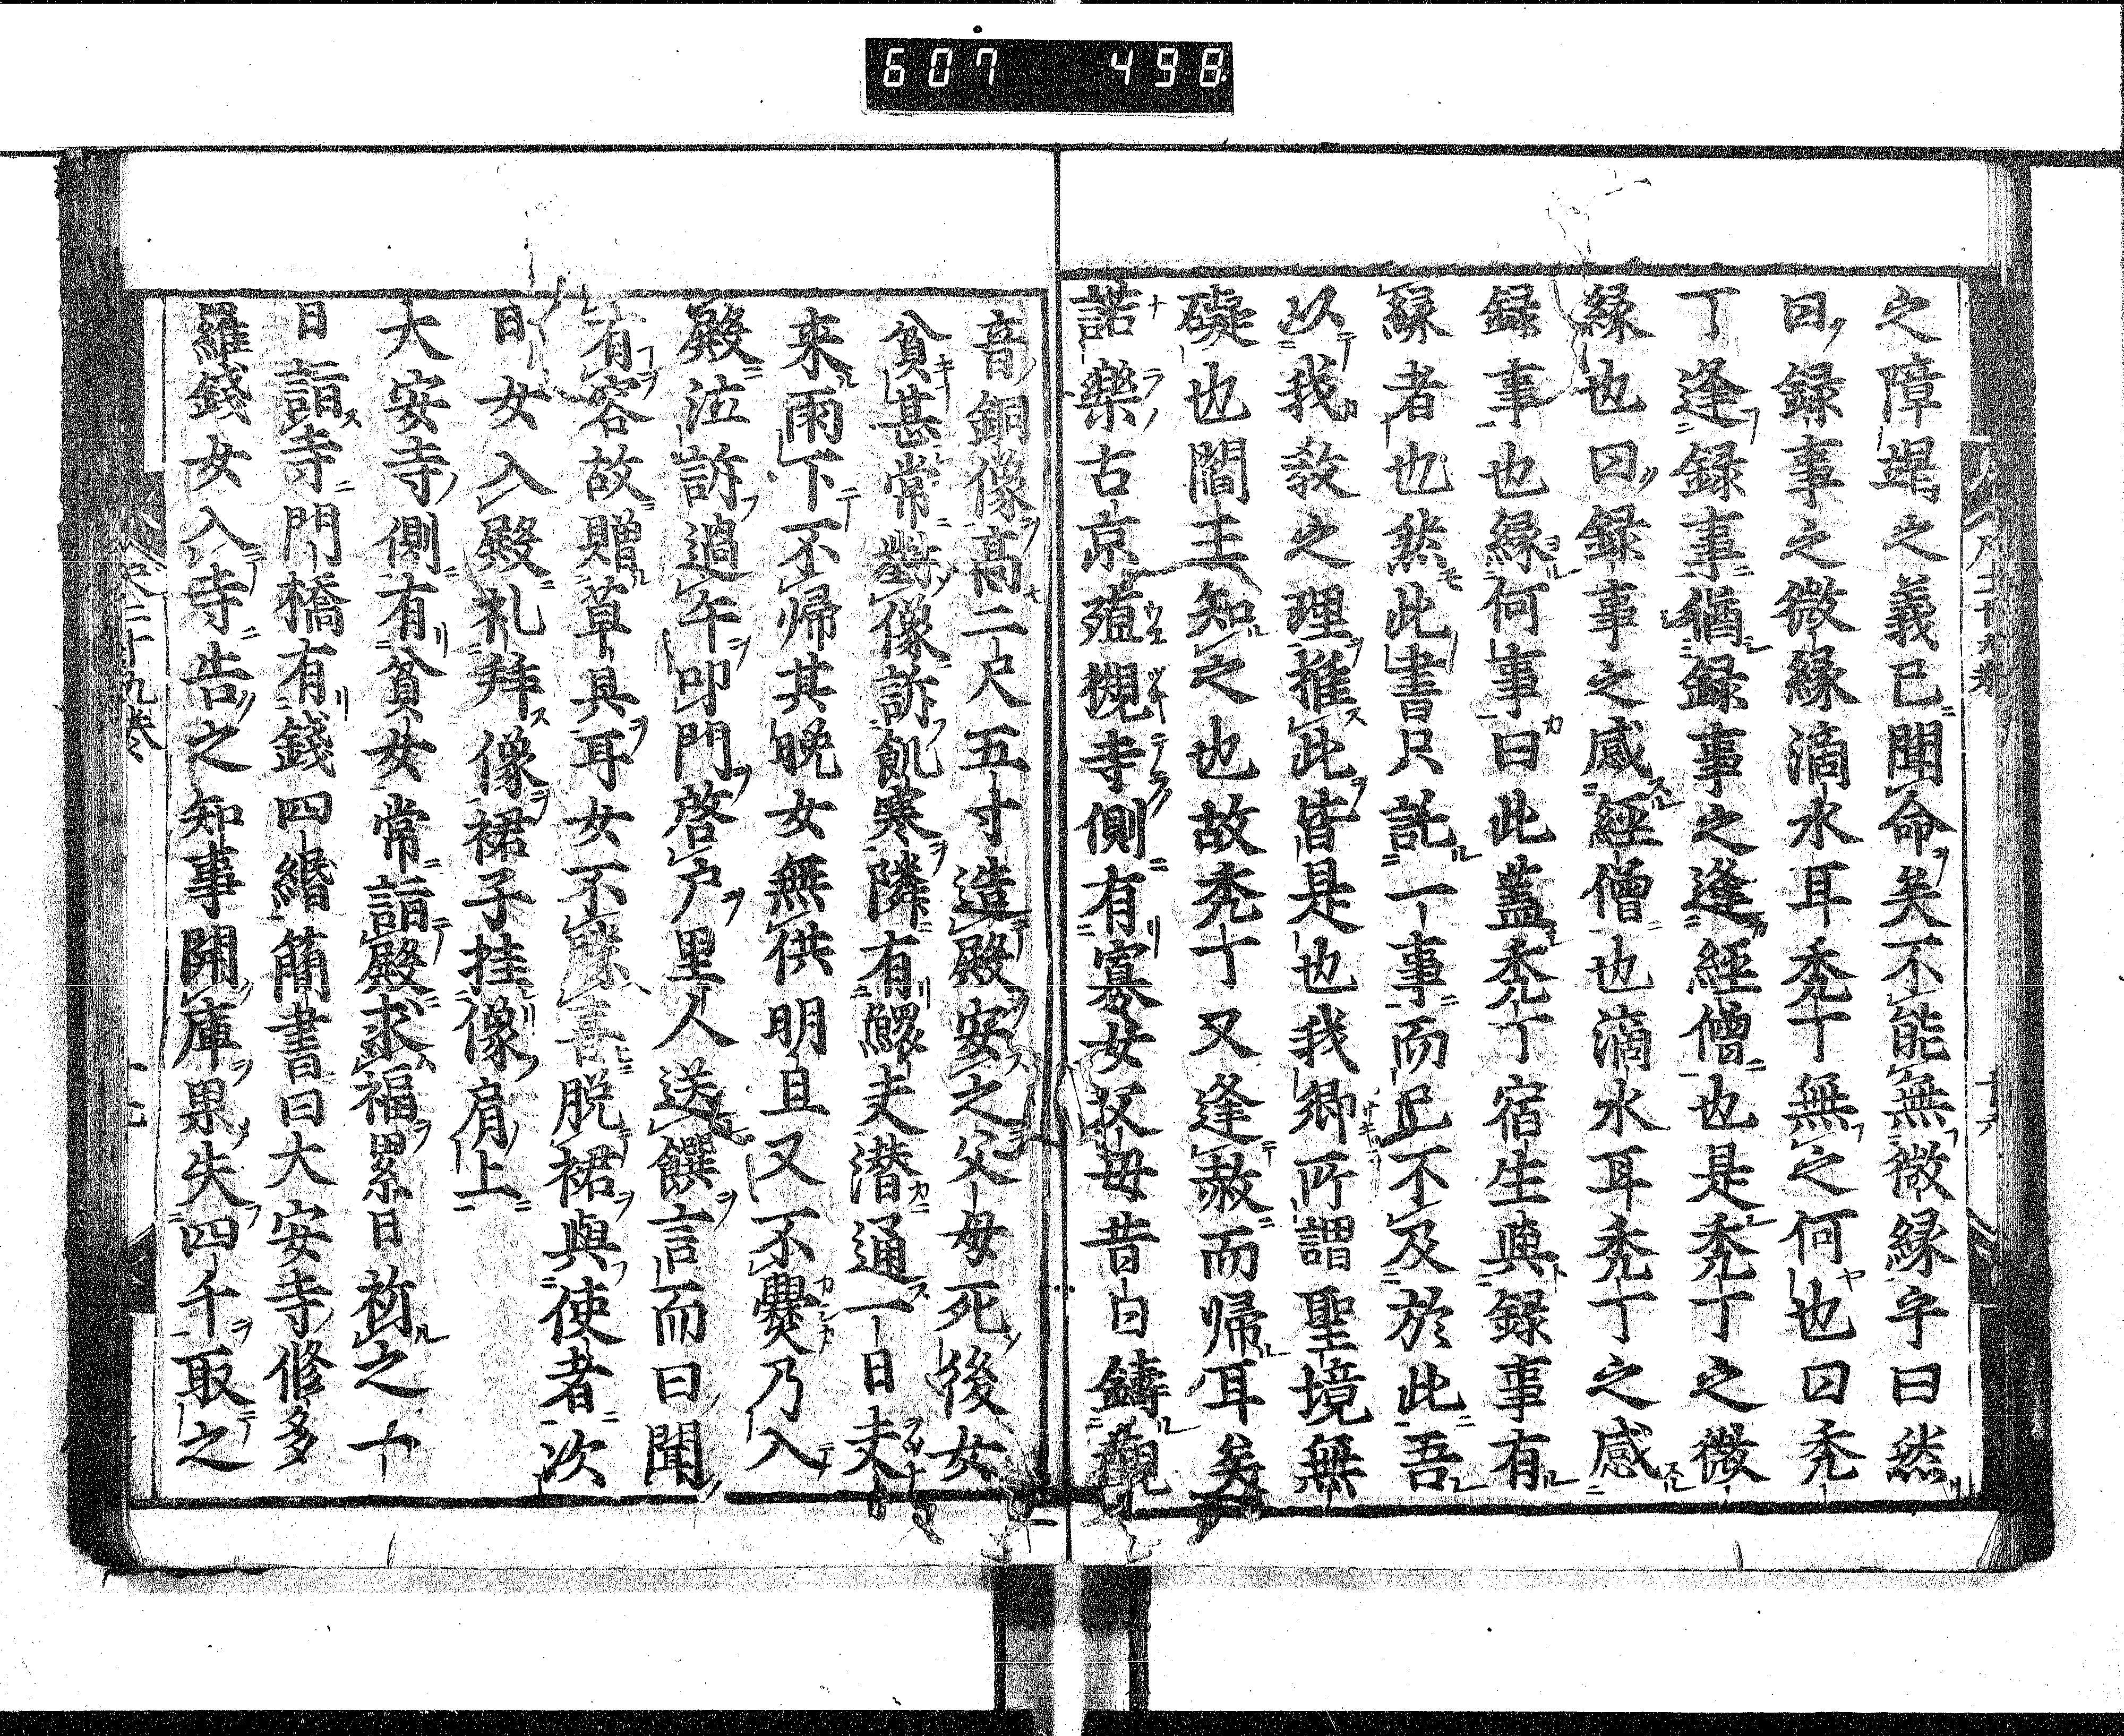 607 498
之障碍之義已聞命矣不能無微縁乎曰然
曰録事之微縁滴水耳禿丁無之何也曰禿
丁逢録事猶録事之逢經僧也是禿丁之微
縁也曰録事之感經僧也滴水耳禿丁之感
録事也縁何事曰此蓋禿丁宿生與録事有
縁者也然此書只託一事而已不及於此吾
以我教之理推此皆是也我卿所謂聖境無
礙也閻王知之也故禿丁又逢赦而歸耳矣
諾樂古京殖槻寺側有寡女父母昔日鑄觀
音銅像高二尺五寸造殿安之父母死後女
貧甚常對像訴飢寒隣有鰥夫潜通一日夫
来雨下不歸其晩女無供明旦又不爨乃入
殿泣訴過午叩門啓戸里人送饌言而曰聞
有客故贈草具耳女不勝喜脱裙與使者次
日女入殿礼拜像裙子挂像肩上
大安寺側有貧女常詣殿求福累日祈之一
日詣寺門橋有錢四緡簡書曰大安寺修多
羅錢女入寺告之知事開庫果失四千取之
二十九卷